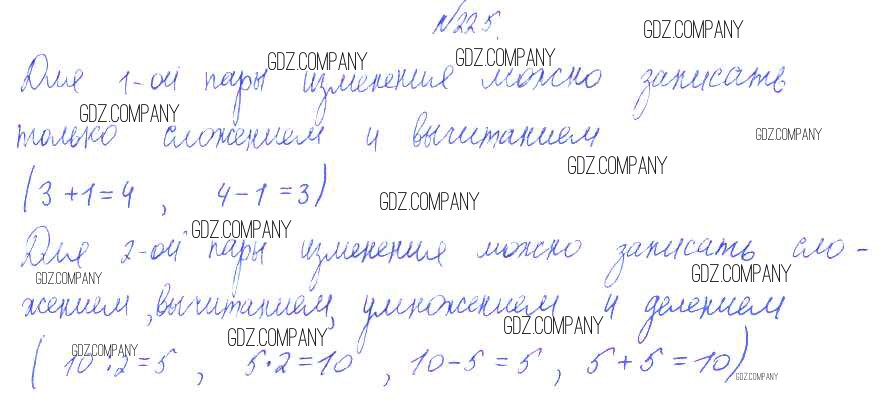 №225.
GDZ.COMPANY
Для 1-ой пары изменения можно записать
GDZ.COMPANY GDZ.COMPANY
GDZ.COMPANY
только сложением и вычитанием
GDZ.COMPANY
GDZ.COMPANY
(3+1=4, 4-1=3)
GDZ.COMPANY
GDZ.COMPANY
Для 2-ой пары изменения можно записать сло-
GDZ.COMPANY GDZ.COMPANY
жением, вычитанием, умножением и делением
GDZ.COMPANY GDZ.COMPANY
GDZ.COMPANY
(10:2=5, 5·2=10, 10-5=5, 5+5=10)
GDZ.COMPANY